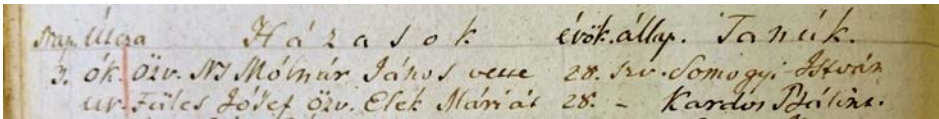 Nap. Útcza Házasok évök. állap. Tanúk.
3. ók. özv. NS Mólnár János vette 28. szv. Somogyi István
ur. Füles Jósef özv. Elek Máriát 28. – Kardos Bálint.